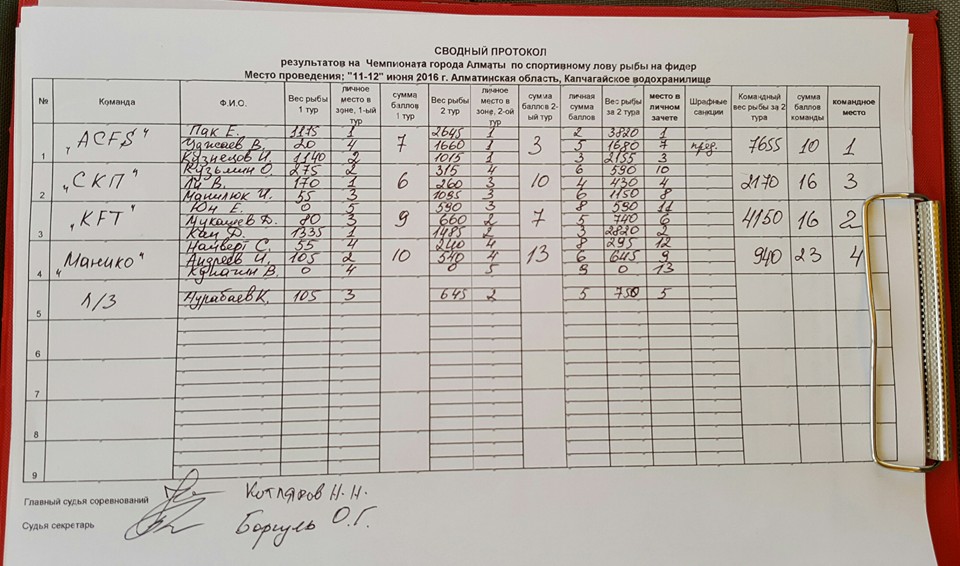 СВОДНЫЙ ПРОТОКОЛ
результатов на Чемпионата города Алматы по спортивному лову рыбы на фидер
Место проведения: "11-12" июня 2016 г. Алматинская область, Капчагайское водохранилище
№ Команда Ф.И.О. Вес рыбы 1 тур личное место в зоне, 1-ый тур сумма баллов 1 тур Вес рыбы 2 тур личное место в зоне, 2-ой тур сумма баллов 2-ый тур личная сумма баллов Вес рыбы за 2 тура место в личном зачете Штрафные санкции Командный вес рыбы за 2 тура сумма баллов команды командное место
1 "ACFS" Пак Е. 1175 1 7 2645 1 3 2 3820 1 7655 10 1
Уджаев В. 20 4 1660 1 5 1680 7 пред.
Кузнецов И. 1140 2 1015 1 3 2155 3
2 "СКП" Кузьмин О. 275 2 6 315 4 10 6 590 10 2170 16 3
Ли В. 170 1 260 3 4 430 4
Манилюк И. 55 3 1095 3 6 1150 8
3 "KFT" Юн Е. 0 5 9 590 3 7 8 590 11 4150 16 2
Микашев Д. 80 3 660 2 5 740 6
Кан Д. 1335 1 1485 2 3 2820 2
4 "Манико" С. 55 4 10 240 4 13 8 295 12 940 23 4
Андреев И. 105 2 540 4 6 645 9
В. 0 4 0 5 9 0 13
5 Л/З Нурабаев К. 105 3 645 2 5 750 5
6
7
8
9
Главный судья соревнований Котляров Н.Н.
Судья секретарь Боргуль О.Г.